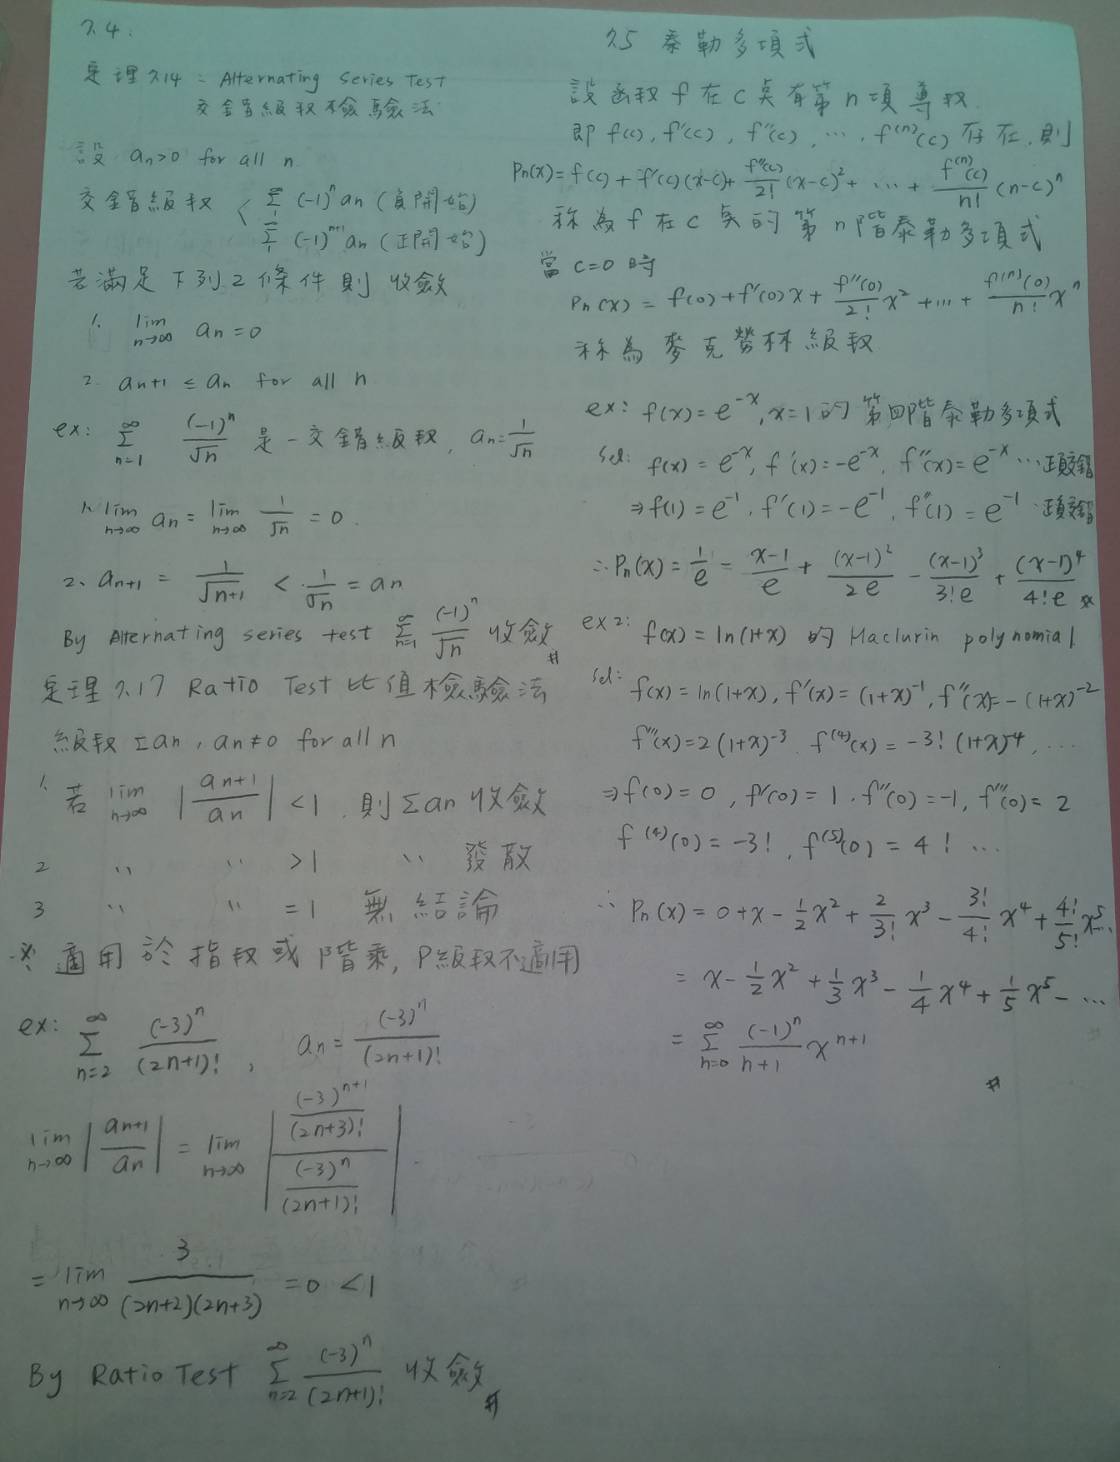 7.4:
定理7.14: Alternating Series Test
交錯級数檢驗法
設 an>0 for all n
交錯級数 < ∞Σ1 (-1)^n an (負開始)
∞Σ1 (-1)^{n+1} an (正開始)
若滿足下列2條件則 收斂
1. lim n→∞ an = 0
2. an+1 ≤ an for all n
ex: ∞Σn=1 (-1)^n/√n 是一交錯級数, an=1/√n
1. lim n→∞ an = lim n→∞ 1/√n = 0.
2、an+1 = 1/√n+1 < 1/√n = an
By Alternating series test ∞Σn=1 (-1)^n/√n 收斂 #
定理7.17 Ratio Test 比值檢驗法
級数 Σan, an≠0 for all n
1. 若 lim n→∞ |an+1/an| < 1, 則 Σan 收斂
2 〃 〃 >1 〃 發散
3 〃 〃 =1 無結論
※ 適用於指数或階乘, P級数不適用
ex: ∞Σn=2 (-3)^n/(2n+1)!, an = (-3)^n/(2n+1)!
lim n→∞ |an+1/an| = lim n→∞ |((-3)^{n+1}/(2n+3)!)/((-3)^n/(2n+1)!)|
= lim n→∞ 3/(2n+2)(2n+3) = 0 < 1
By Ratio Test ∞Σn=2 (-3)^n/(2n+1)! 收斂 #
7.5 泰勒多項式
設函数 f 在 c 奌有第 n 項導数
即 f(c), f'(c), f''(c), ..., f^(n)(c) 存在, 則
Pn(x) = f(c) + f'(c)(x-c) + f''(c)/2! (x-c)^2 + ... + f^(n)(c)/n! (n-c)^n
称為 f 在 c 奌的第 n 階泰勒多項式
當 c=0 時
Pn(x) = f(0) + f'(0)x + f''(0)/2! x^2 + ... + f^(n)(0)/n! x^n
称為麥克勞林級数
ex: f(x) = e^-x, x=1 的 第四階泰勒多項式
sol: f(x) = e^-x, f'(x) = -e^-x, f''(x) = e^-x ...正負交錯
⇒ f(1) = e^-1, f'(1) = -e^-1, f''(1) = e^-1 ...正負交錯
∴ Pn(x) = 1/e - x-1/e + (x-1)^2/2e - (x-1)^3/3!e + (x-1)^4/4!e #
ex2: f(x) = ln(1+x) 的 Maclurin polynomial
sol: f(x) = ln(1+x), f'(x) = (1+x)^-1, f''(x) = -(1+x)^-2
f'''(x) = 2(1+x)^-3, f^(4)(x) = -3!(1+x)^-4, ...
⇒ f(0) = 0, f'(0) = 1, f''(0) = -1, f'''(0) = 2
f^(4)(0) = -3!, f^(5)(0) = 4! ...
∴ Pn(x) = 0+x - 1/2 x^2 + 2/3! x^3 - 3!/4! x^4 + 4!/5! x^5 ...
= x - 1/2 x^2 + 1/3 x^3 - 1/4 x^4 + 1/5 x^5 - ...
= ∞Σn=0 (-1)^n/n+1 x^{n+1}
#